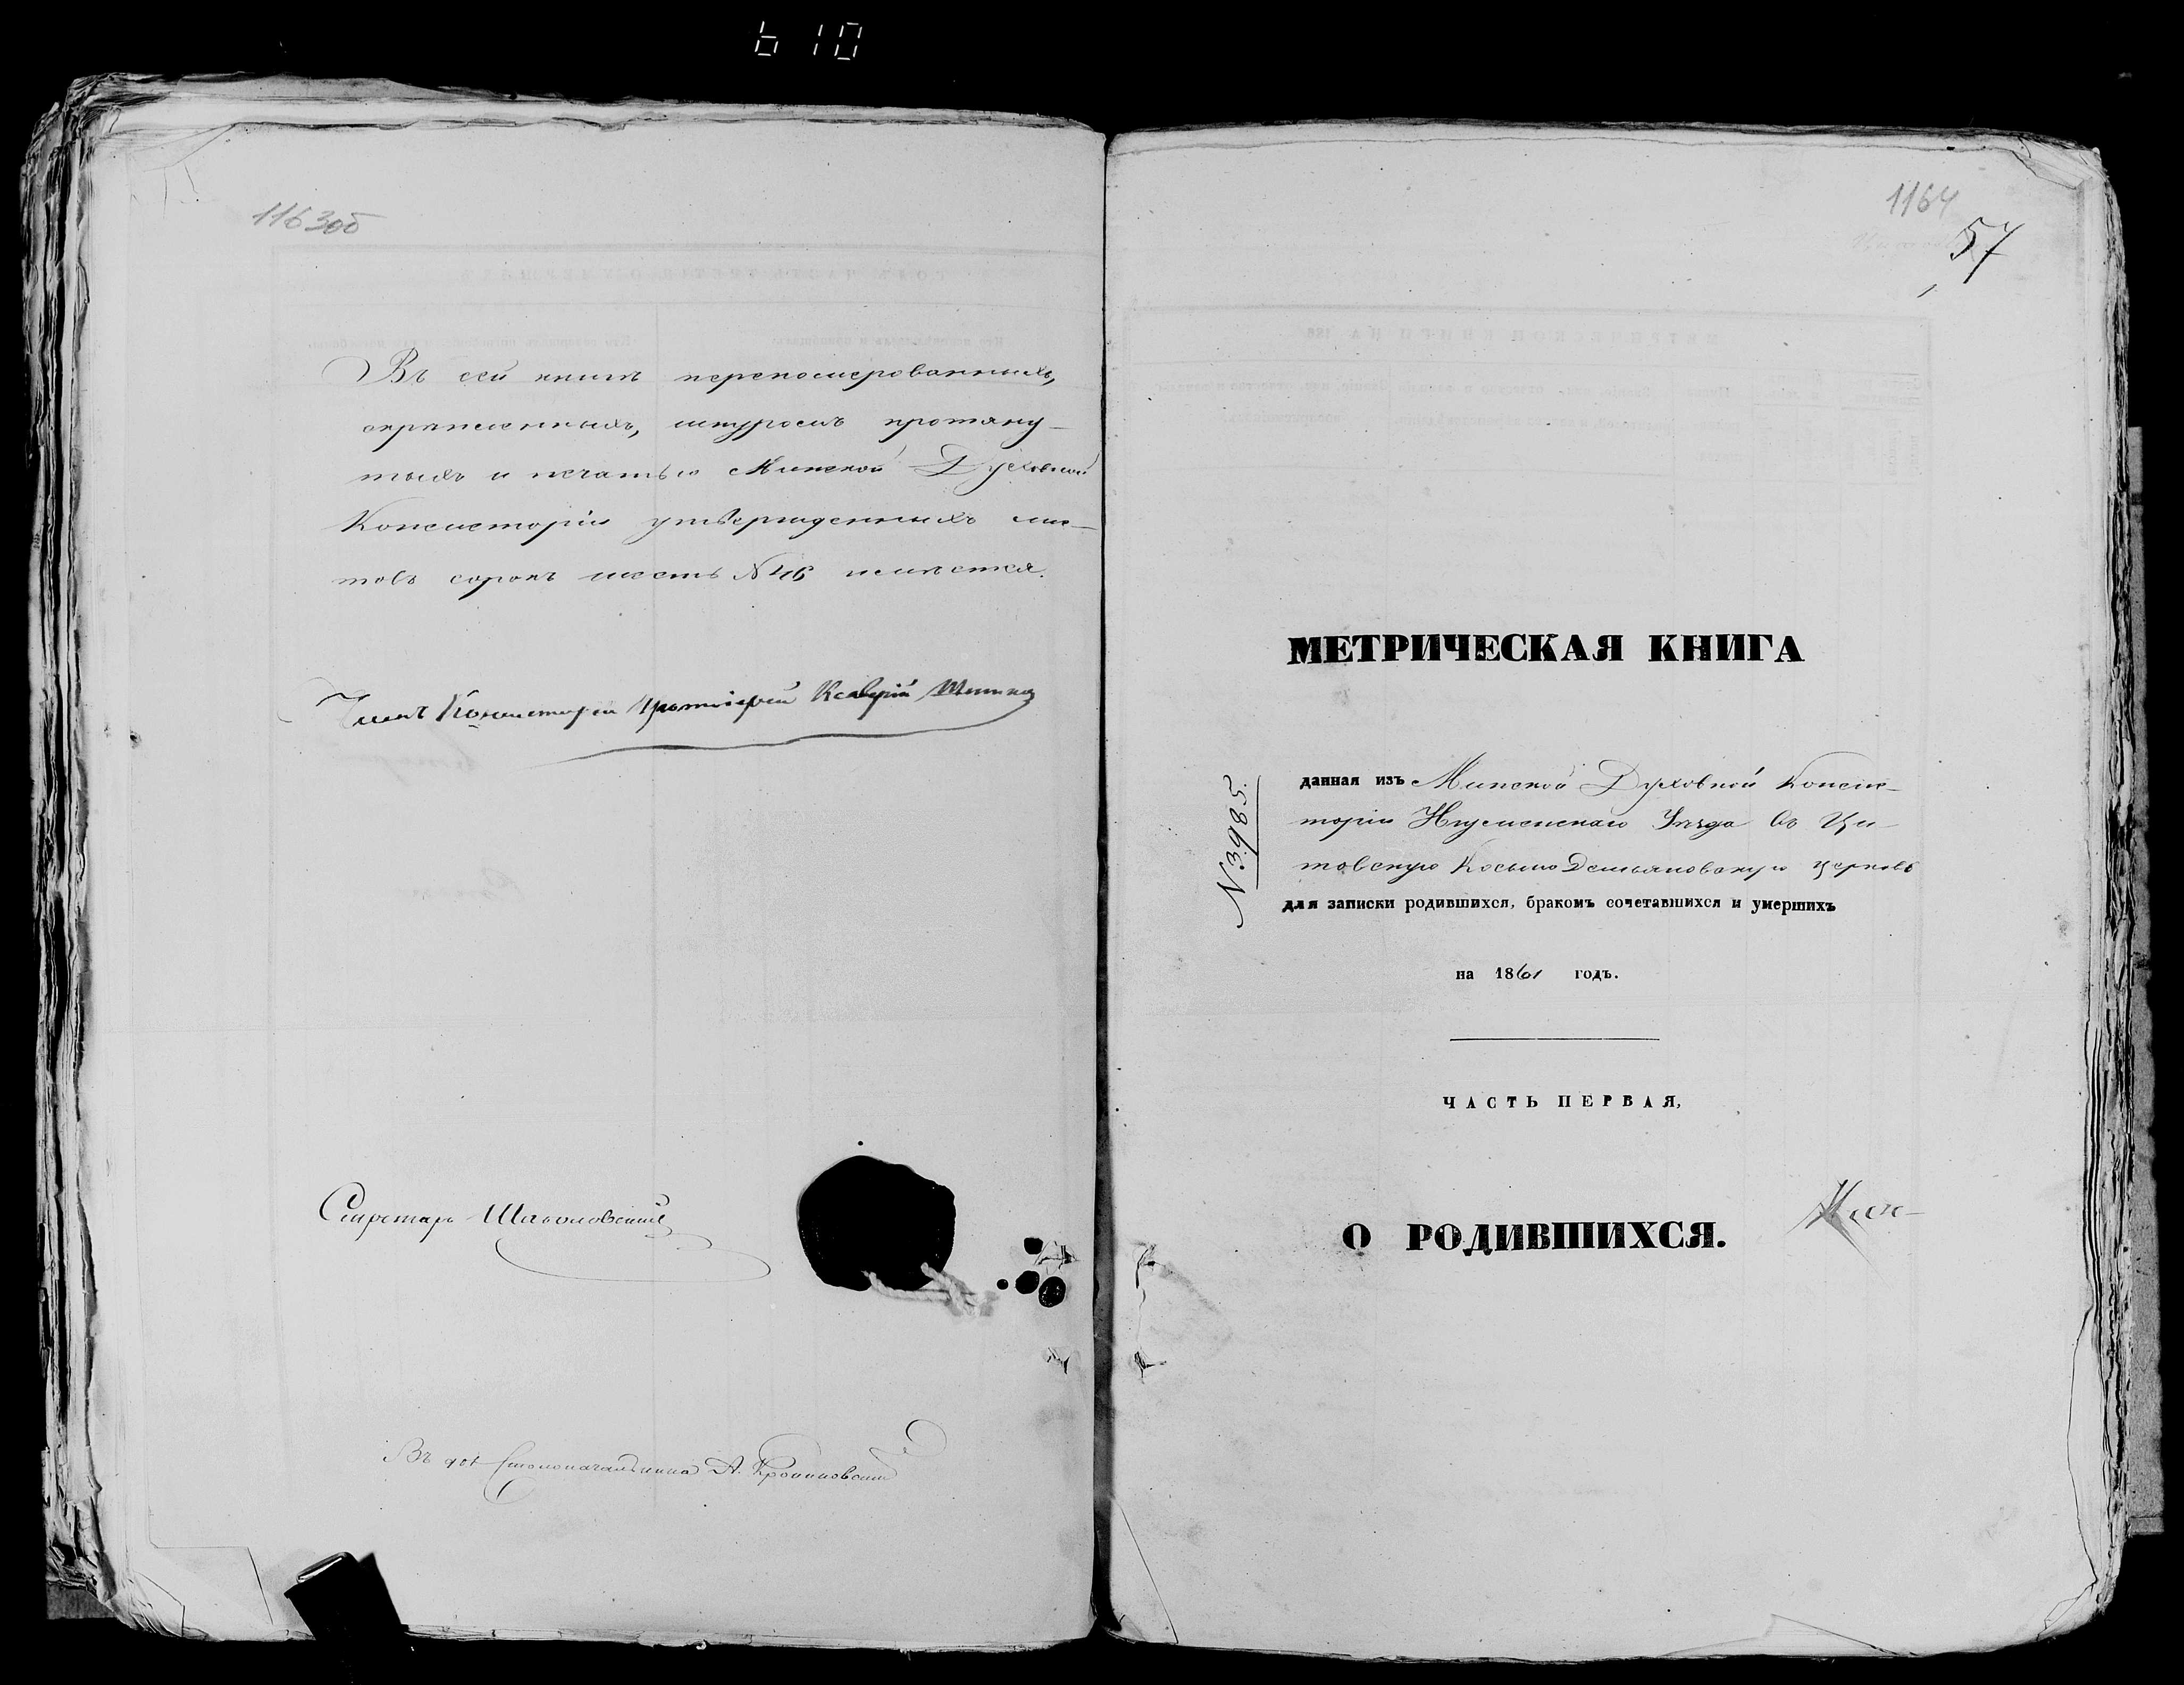 610
1163об
Въ сей книгѣ перепомерованныхъ,
скрѣпленныхъ, шнуромъ протяну-
тыхъ и печатью Минской Духовной
Консисторіи утвержденныхъ лис-
товъ сорокъ шесть N 46 имѣется.
Членъ Консисторіи Протоіерей
Секретарь
Въ д. Столоначальника А.
1164
57
МЕТРИЧЕСКАЯ КНИГА
N. 3985.
данная изъ Минской Духовной Консис-
торіи Игуменскаго Уѣзда въ Ци-
товскую Косьмо Демьяновскую церковь
для записки родившихся, бракомъ сочетавшихся и умершихъ
на 1861 годъ.
ЧАСТЬ ПЕРВАЯ,
О РОДИВШИХСЯ.